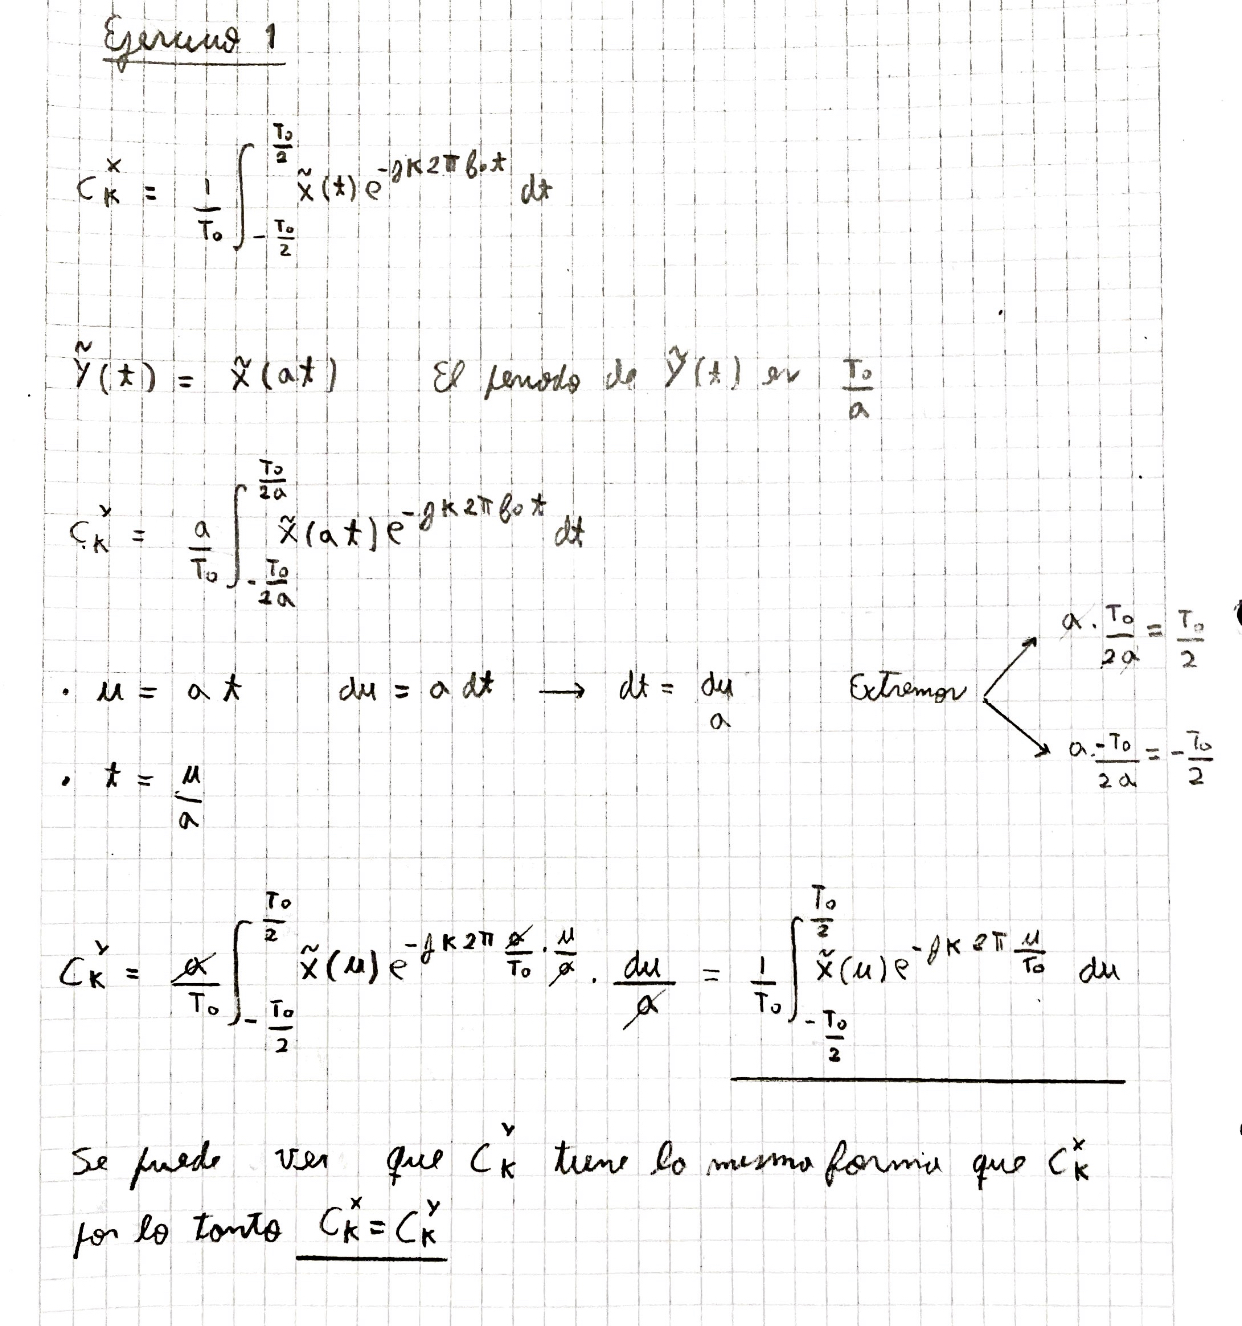 Ejercicio 1
C_K^X = \frac{1}{T_0} \int_{-\frac{T_0}{2}}^{\frac{T_0}{2}} \tilde{x}(t) e^{-jK2\pi f_0 t} dt
\tilde{y}(t) = \tilde{x}(at) El periodo de \tilde{y}(t) es \frac{T_0}{a}
C_K^Y = \frac{a}{T_0} \int_{-\frac{T_0}{2a}}^{\frac{T_0}{2a}} \tilde{x}(at) e^{-jK2\pi f_0 t} dt
· u = at du = a dt → dt = \frac{du}{a} Extremos a · \frac{T_0}{2a} = \frac{T_0}{2}
a · \frac{-T_0}{2a} = -\frac{T_0}{2}
· t = \frac{u}{a}
C_K^Y = \frac{a}{T_0} \int_{-\frac{T_0}{2}}^{\frac{T_0}{2}} \tilde{x}(u) e^{-jK2\pi \frac{a}{T_0} · \frac{u}{a}} · \frac{du}{a} = \frac{1}{T_0} \int_{-\frac{T_0}{2}}^{\frac{T_0}{2}} \tilde{x}(u) e^{-jK2\pi \frac{u}{T_0}} du
Se puede ver que C_K^Y tiene la misma forma que C_K^X
por lo tanto C_K^X = C_K^Y